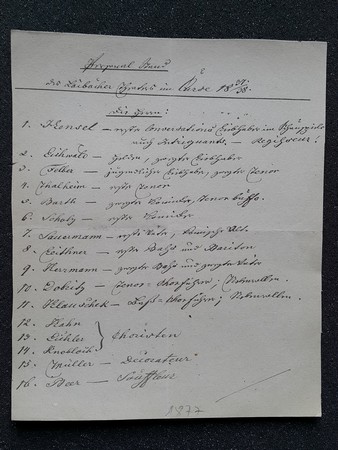 Personal Stand
des Laibacher Theaters im Curse 18 37/38.
Die Herrn:
1. Hensel — erste Conversations Liebhaber im Schauspiele
auch Intriguants. — Regisseur!
2. — Helden, zweyte Liebhaber
3. Felber — jugendliche Liebhaber, zweyte Tenor
4. Thalheim — erste Tenor
5. Barth — zweyte Komiker, Tenor buffo.
6. Scholz — erste Komiker
7. — erste Väter, komische Alte.
8. Leithner — erste Bass und Bariton
9. Herrmann — zweyte Bass und zweyte Väter
10. — Tenor-Chorführer; Nebenrollen.
11. — Bass-Chorführer; Nebenrollen.
12. Hahn
13. Eichler } Choristen
14. Knobloch
15. Müller — Decorateur
16. Baer — Souffleur
1877